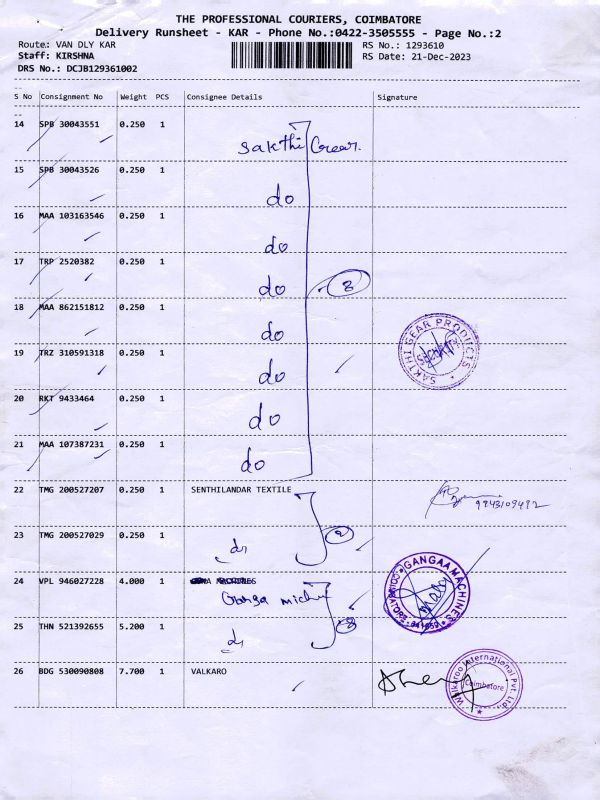 THE PROFESSIONAL COURIERS, COIMBATORE
Delivery Runsheet - KAR - Phone No.:0422-3505555 - Page No.:2
Route: VAN DLY KAR RS No.: 1293610
Staff: KIRSHNA RS Date: 21-Dec-2023
DRS No.: DCJB129361002
S No Consignment No Weight PCS Consignee Details Signature
14 SPB 30043551 0.250 1 Sakthi Gear.
15 SPB 30043526 0.250 1 do
16 MAA 103163546 0.250 1 do
17 TRP 2520382 0.250 1 do 8
18 MAA 862151812 0.250 1 do
SAKTHI GEAR PRODUCTS
19 TRZ 310591318 0.250 1 do
20 RKT 9433464 0.250 1 do
21 MAA 107387231 0.250 1 do
22 TMG 200527207 0.250 1 SENTHILANDAR TEXTILE
9943109492
23 TMG 200527029 0.250 1 do 2
24 VPL 946027228 4.000 1
Ganga
GANGAA MACHINES COIMBATORE
25 THN 521392655 5.200 1 do
26 BDG 530090808 7.700 1 VALKARO
Walkaroo International Pvt. Ltd.
Coimbatore